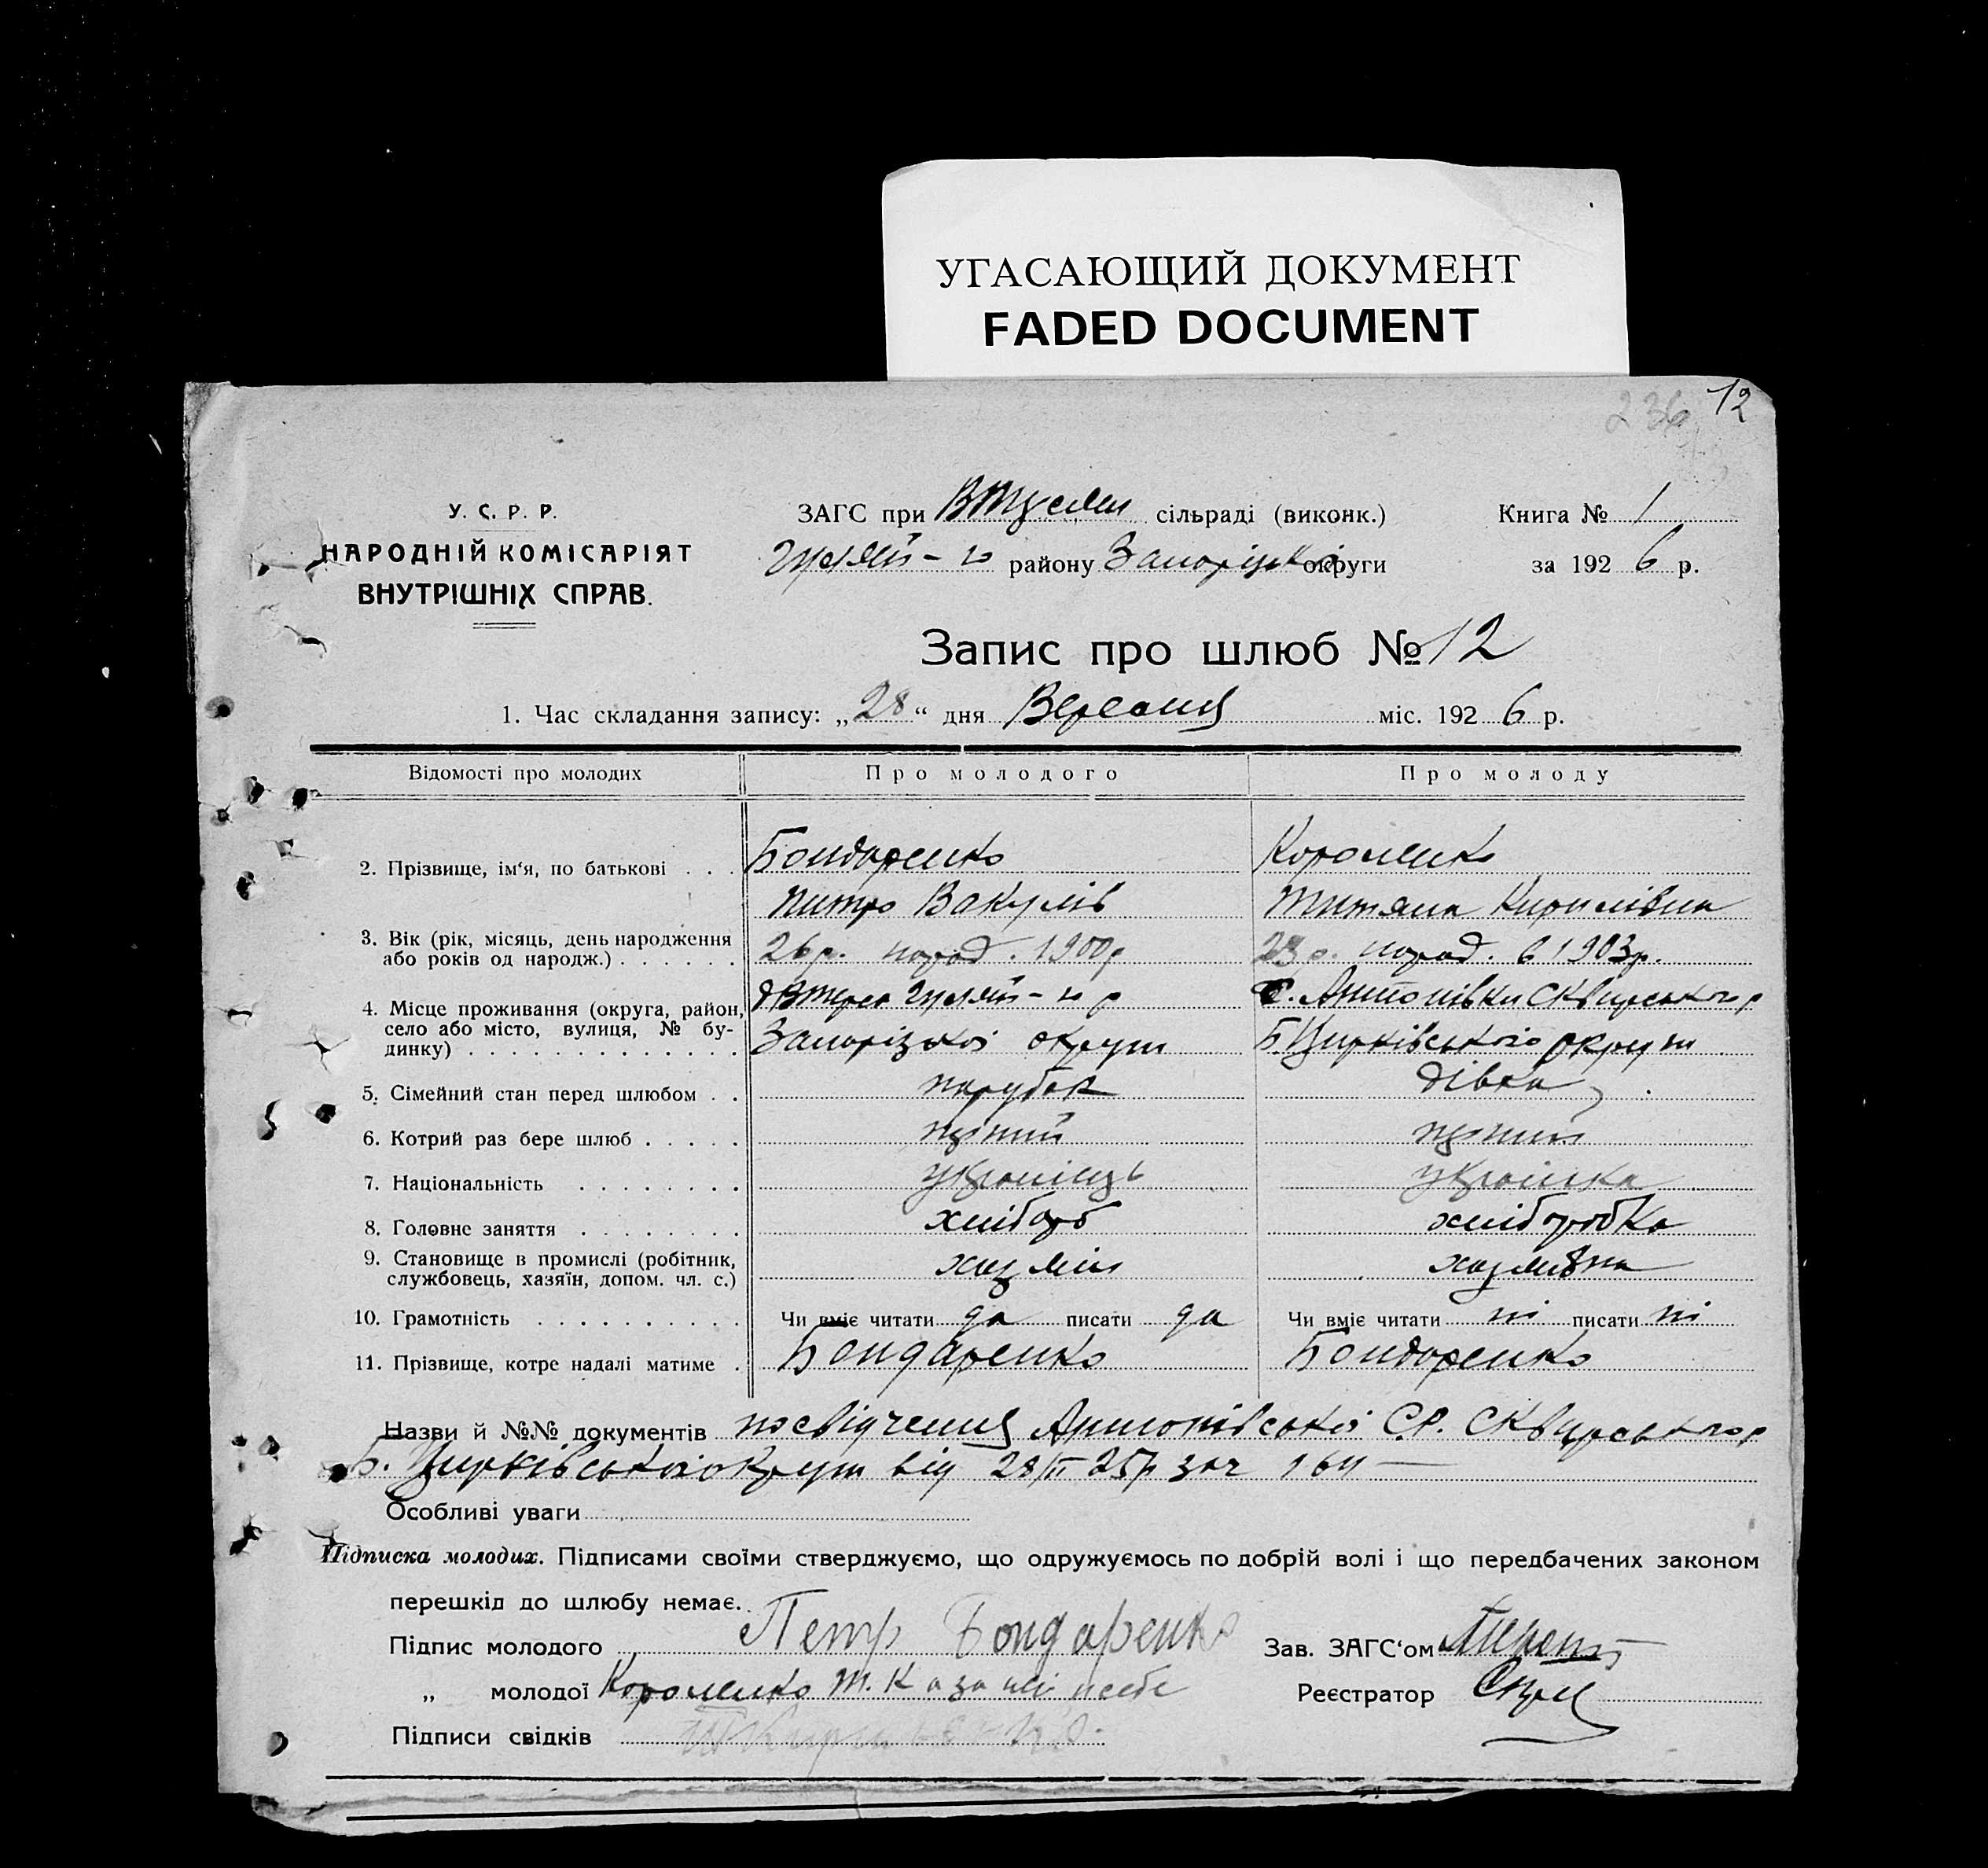 УГАСАЮЩИЙ ДОКУМЕНТ
FADED DOCUMENT
236 12
У. С. Р. Р.
НАРОДНІЙ КОМІСАРІЯТ
ВНУТРІШНІХ СПРАВ.
ЗАГС при сільраді (виконк.)
району Запорізької округи
Книга № 1
за 1926 р.
Запис про шлюб № 12
1. Час складання запису: „28“ дня Вересня міс. 1926 р.
Відомості про молодих
Про молодого
Про молоду
2. Прізвище, ім‘я, по батькові . . .
Бондаренко
Питро Вакулів
Короленко
Титяна Кирилівна
3. Вік (рік, місяць, день народження
або років од народж.) . . . . . .
26 р. народ. 1900р
23 р. народ. в 1903р.
4. Місце проживання (округа, район,
село або місто, вулиця, № бу-
динку) . . . . . . . . . . . . .
Запорізької округи
с. Антонівки Сквирського р
Б Церківського округи
5. Сімейний стан перед шлюбом . .
парубок
дівка
6. Котрий раз бере шлюб . . . . .
7. Національність . . . . . . . .
українець
українка
8. Головне заняття . . . . . . . .
хлібороб
хліборобка
9. Становище в промислі (робітник,
службовець, хазяїн, допом. чл. с.)
хазяїн
10. Грамотність . . . . . . . . . .
Чи вміє читати да писати да
Чи вміє читати ні писати ні
11. Прізвище, котре надалі матиме .
Бондаренко
Бондаренко
Назви й №№ документів посвідчення Антонівської С.Р. Сквирського р
Б. Церківського округи від 28/III 25р за №
Особливі уваги
Підписка молодих. Підписами своїми стверджуємо, що одружуємось по добрій волі і що передбачених законом
перешкід до шлюбу немає.
Підпис молодого Петр Бондаренко
Зав. ЗАГС‘ом
„ молодої Короленко Т. К
Реєстратор
Підписи свідків